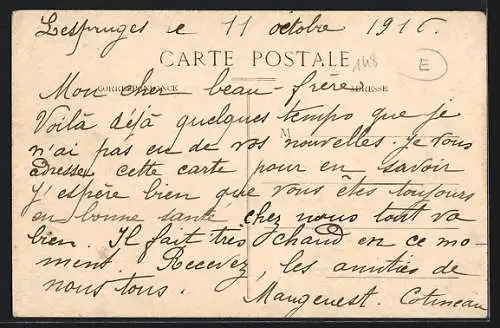 Lespruges le 11 octobre 1916.
CARTE POSTALE
148
E
CORRESPONDANCE
ADRESSE
Mon cher beau-frère
Voilà déjà quelques temps que je
M
n'ai pas eu de vos nouvelles. Je vous
adresse cette carte pour en savoir
J'espère bien que vous êtes toujours
en bonne santé chez nous tout va
bien. Il fait très chaud en ce mo-
ment. Recevez, les amitiés de
nous tous. Maugenest. Cotineau